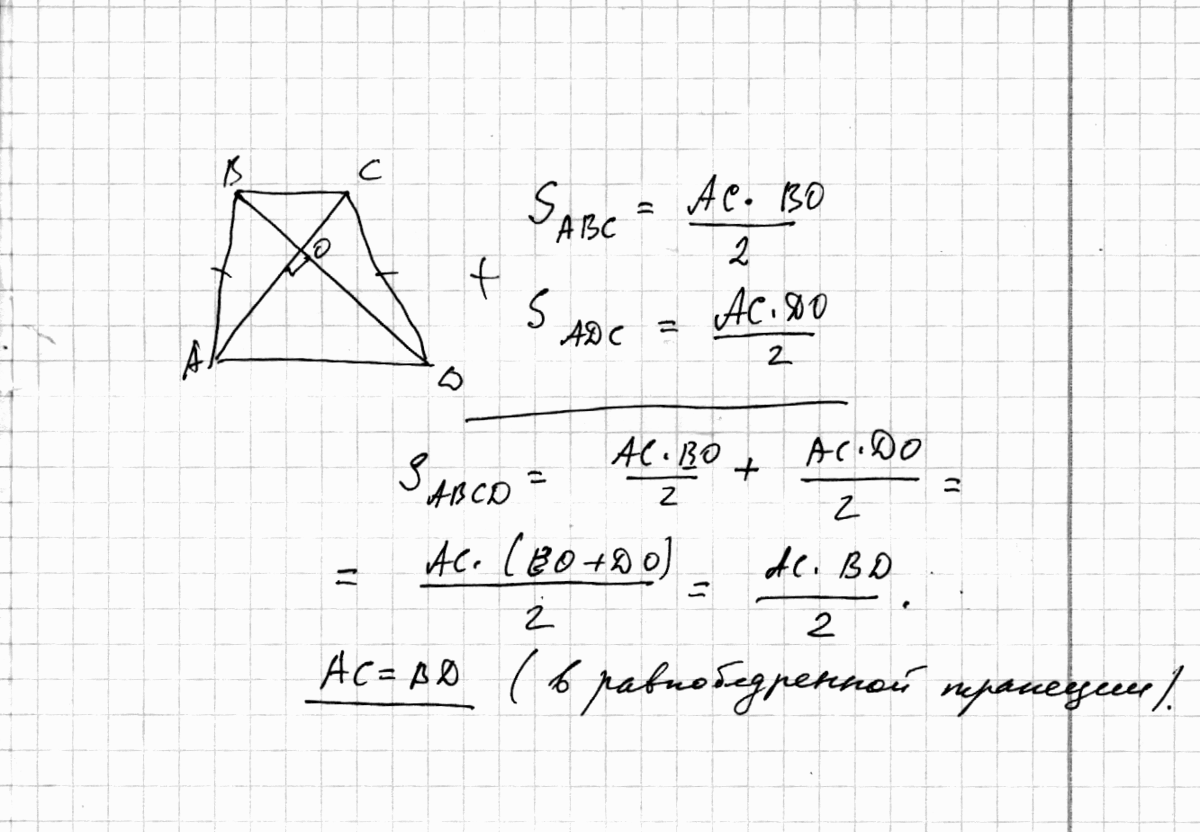 B C
O
A D
S_ABC = AC · BO / 2
+
S_ADC = AC · DO / 2
S_ABCD = AC · BO / 2 + AC · DO / 2 =
= AC · (BO + DO) / 2 = AC · BD / 2 .
AC = BD (в равнобедренной трапеции).